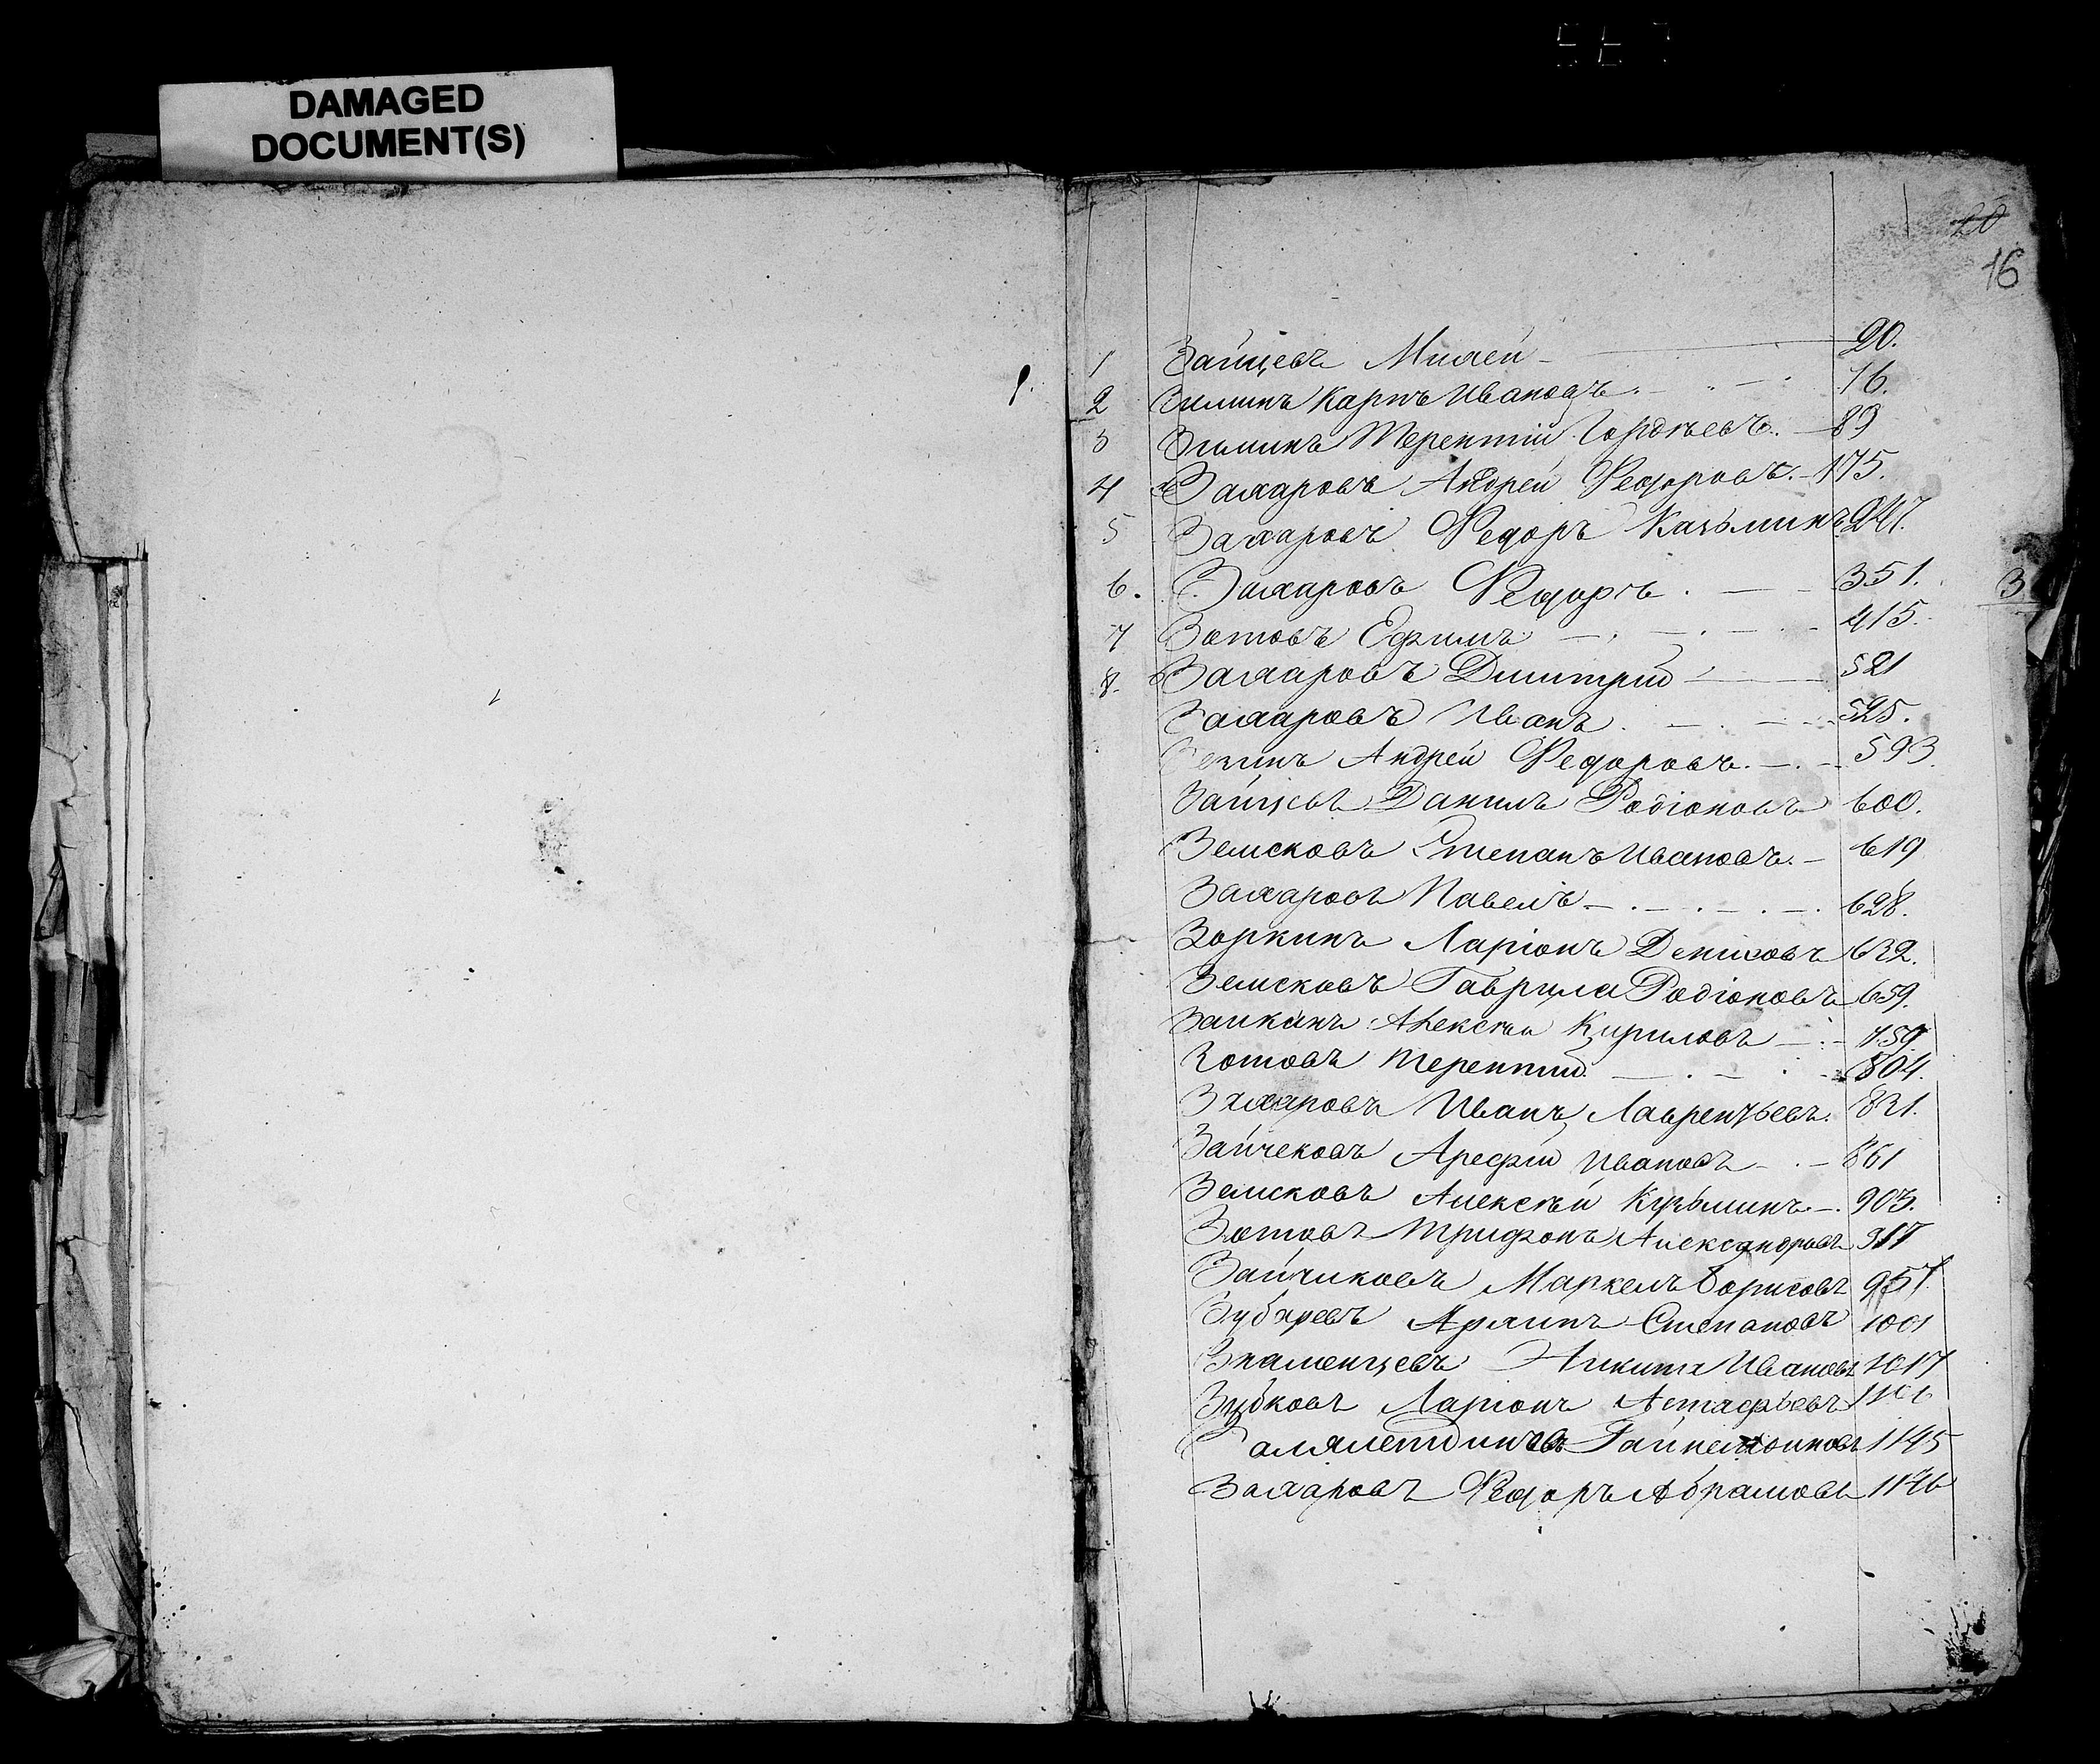 DAMAGED
DOCUMENT(S)
20
16
1 Зайцевъ Милей 20.
2 Зиминъ Карпъ Ивановъ 76.
3 Зиминъ Терентій Гордѣевъ. 89
4 Захаровъ Андрей Федоровъ. 175.
5 Захаровъ Федоръ Казьминъ 247.
6. Захаровъ Федоръ. 351.
З
7 Зотовъ Ефимъ 415.
8. Захаровъ Дмитрій 521
Захаровъ Иванъ 525.
Андрей Федоровъ. 593.
Зайцевъ Данилъ Родіоновъ 600.
Земсковъ Степанъ Ивановъ. 619
Захаровъ Павелъ 628.
Зоркинъ Ларіонъ Денисовъ 632.
Земсковъ Гаврила Родіоновъ 659.
Заикинъ Алексѣй Кириловъ 759
Зотовъ Терентій 804.
Захаровъ Иванъ Лаврентьевъ. 831.
Зайчековъ Арефій Ивановъ 861
Земсковъ Алексѣй Кузьминъ 903.
Зотовъ Трифонъ Александровъ 917
Зайчиковъ Маркелъ Борисовъ 957.
Зубаревъ Степановъ 1001
Знаменцевъ Никита Ивановъ 1017
Зубковъ Ларіонъ Астафьевъ
1145
Захаровъ Федоръ Абрамовъ 1146